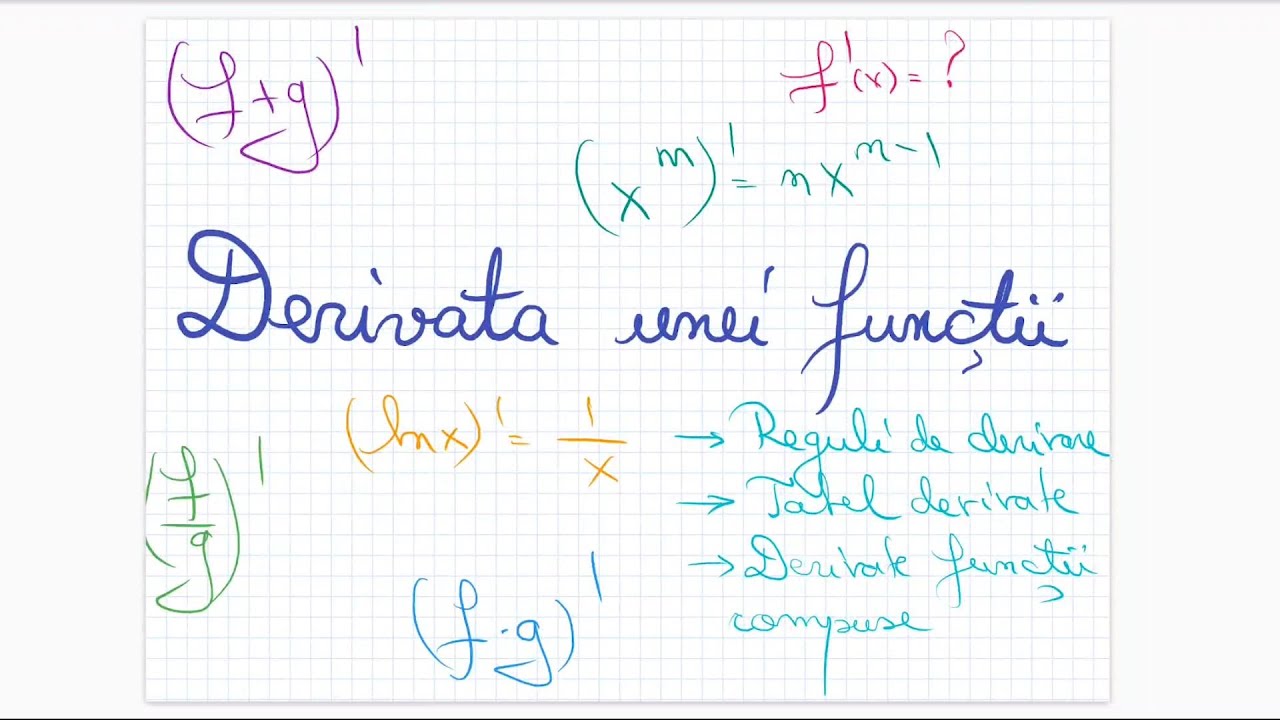 (f+g)'
f'(x) = ?
(x^n)' = nx^{n-1}
Derivata unei funcții
(ln x)' = 1/x
→ Reguli de derivare
→ Tabel derivate
→ Derivate funcții
compuse
(f/g)'
(f·g)'